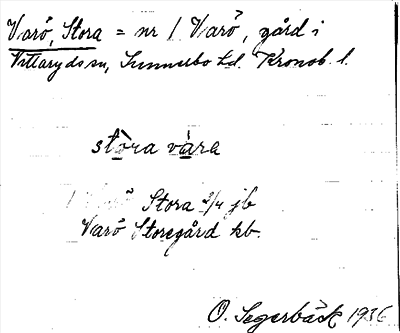 Varö, Stora = nr 1 Varö, gård i
Vittaryds sn, Sunnerbo hd. Kronob. l.
stòra våra
Stora 3/4 jb
Varö Storegård kb.
O. Segerbäck 1936